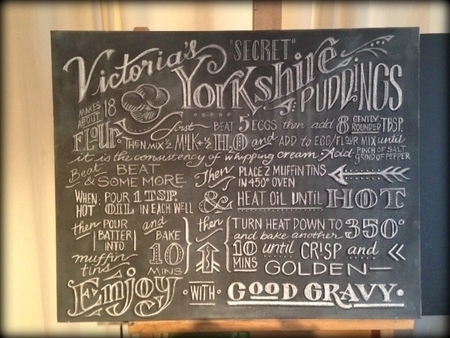 Victoria's "SECRET"
Yorkshire PUDDINGS
MAKES ABOUT 18
first BEAT 5 EGGS then add 8 GENTLY ROUNDED TBSP.
FLOUR THEN MIX ½ MILK + ½ H2O and ADD to EGG/FLOUR MIX until
it is the consistency of whipping cream. Add PINCH OF SALT GRIND OF PEPPER
Beat BEAT & SOME MORE
Then PLACE 2 MUFFIN TINS IN 450° OVEN
WHEN HOT POUR 1 TSP. OIL IN EACH WELL
& HEAT OIL UNTIL HOT
then POUR BATTER INTO muffin tins
and BAKE 10 MINS
then TURN HEAT DOWN TO 350°
and bake another
10 MINS until CRISP and
GOLDEN
Enjoy WITH GOOD GRAVY.